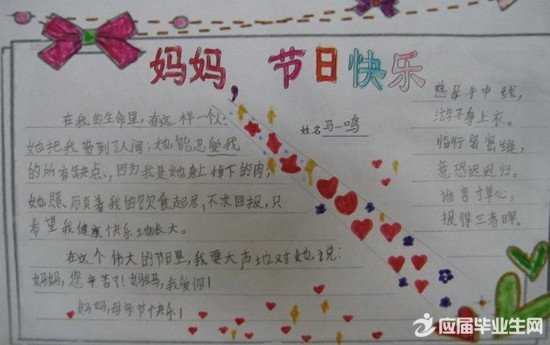 妈妈，节日快乐
姓名 马一鸣
在我的生命里，有这样一个人：
她把我带到了人间；她能忍受我
的所有缺点，因为我是她身上掉下的肉；
她照顾着我的饮食起居，不求回报，只
希望我健康快乐地长大。
在这个伟大的节日里，我要大声地对她说：
妈妈，您辛苦了！妈妈，我爱你！
妈妈，母亲节快乐！
慈母手中线，
游子身上衣。
临行密密缝，
意恐迟迟归。
谁言寸草心，
报得三春晖。
应届毕业生网